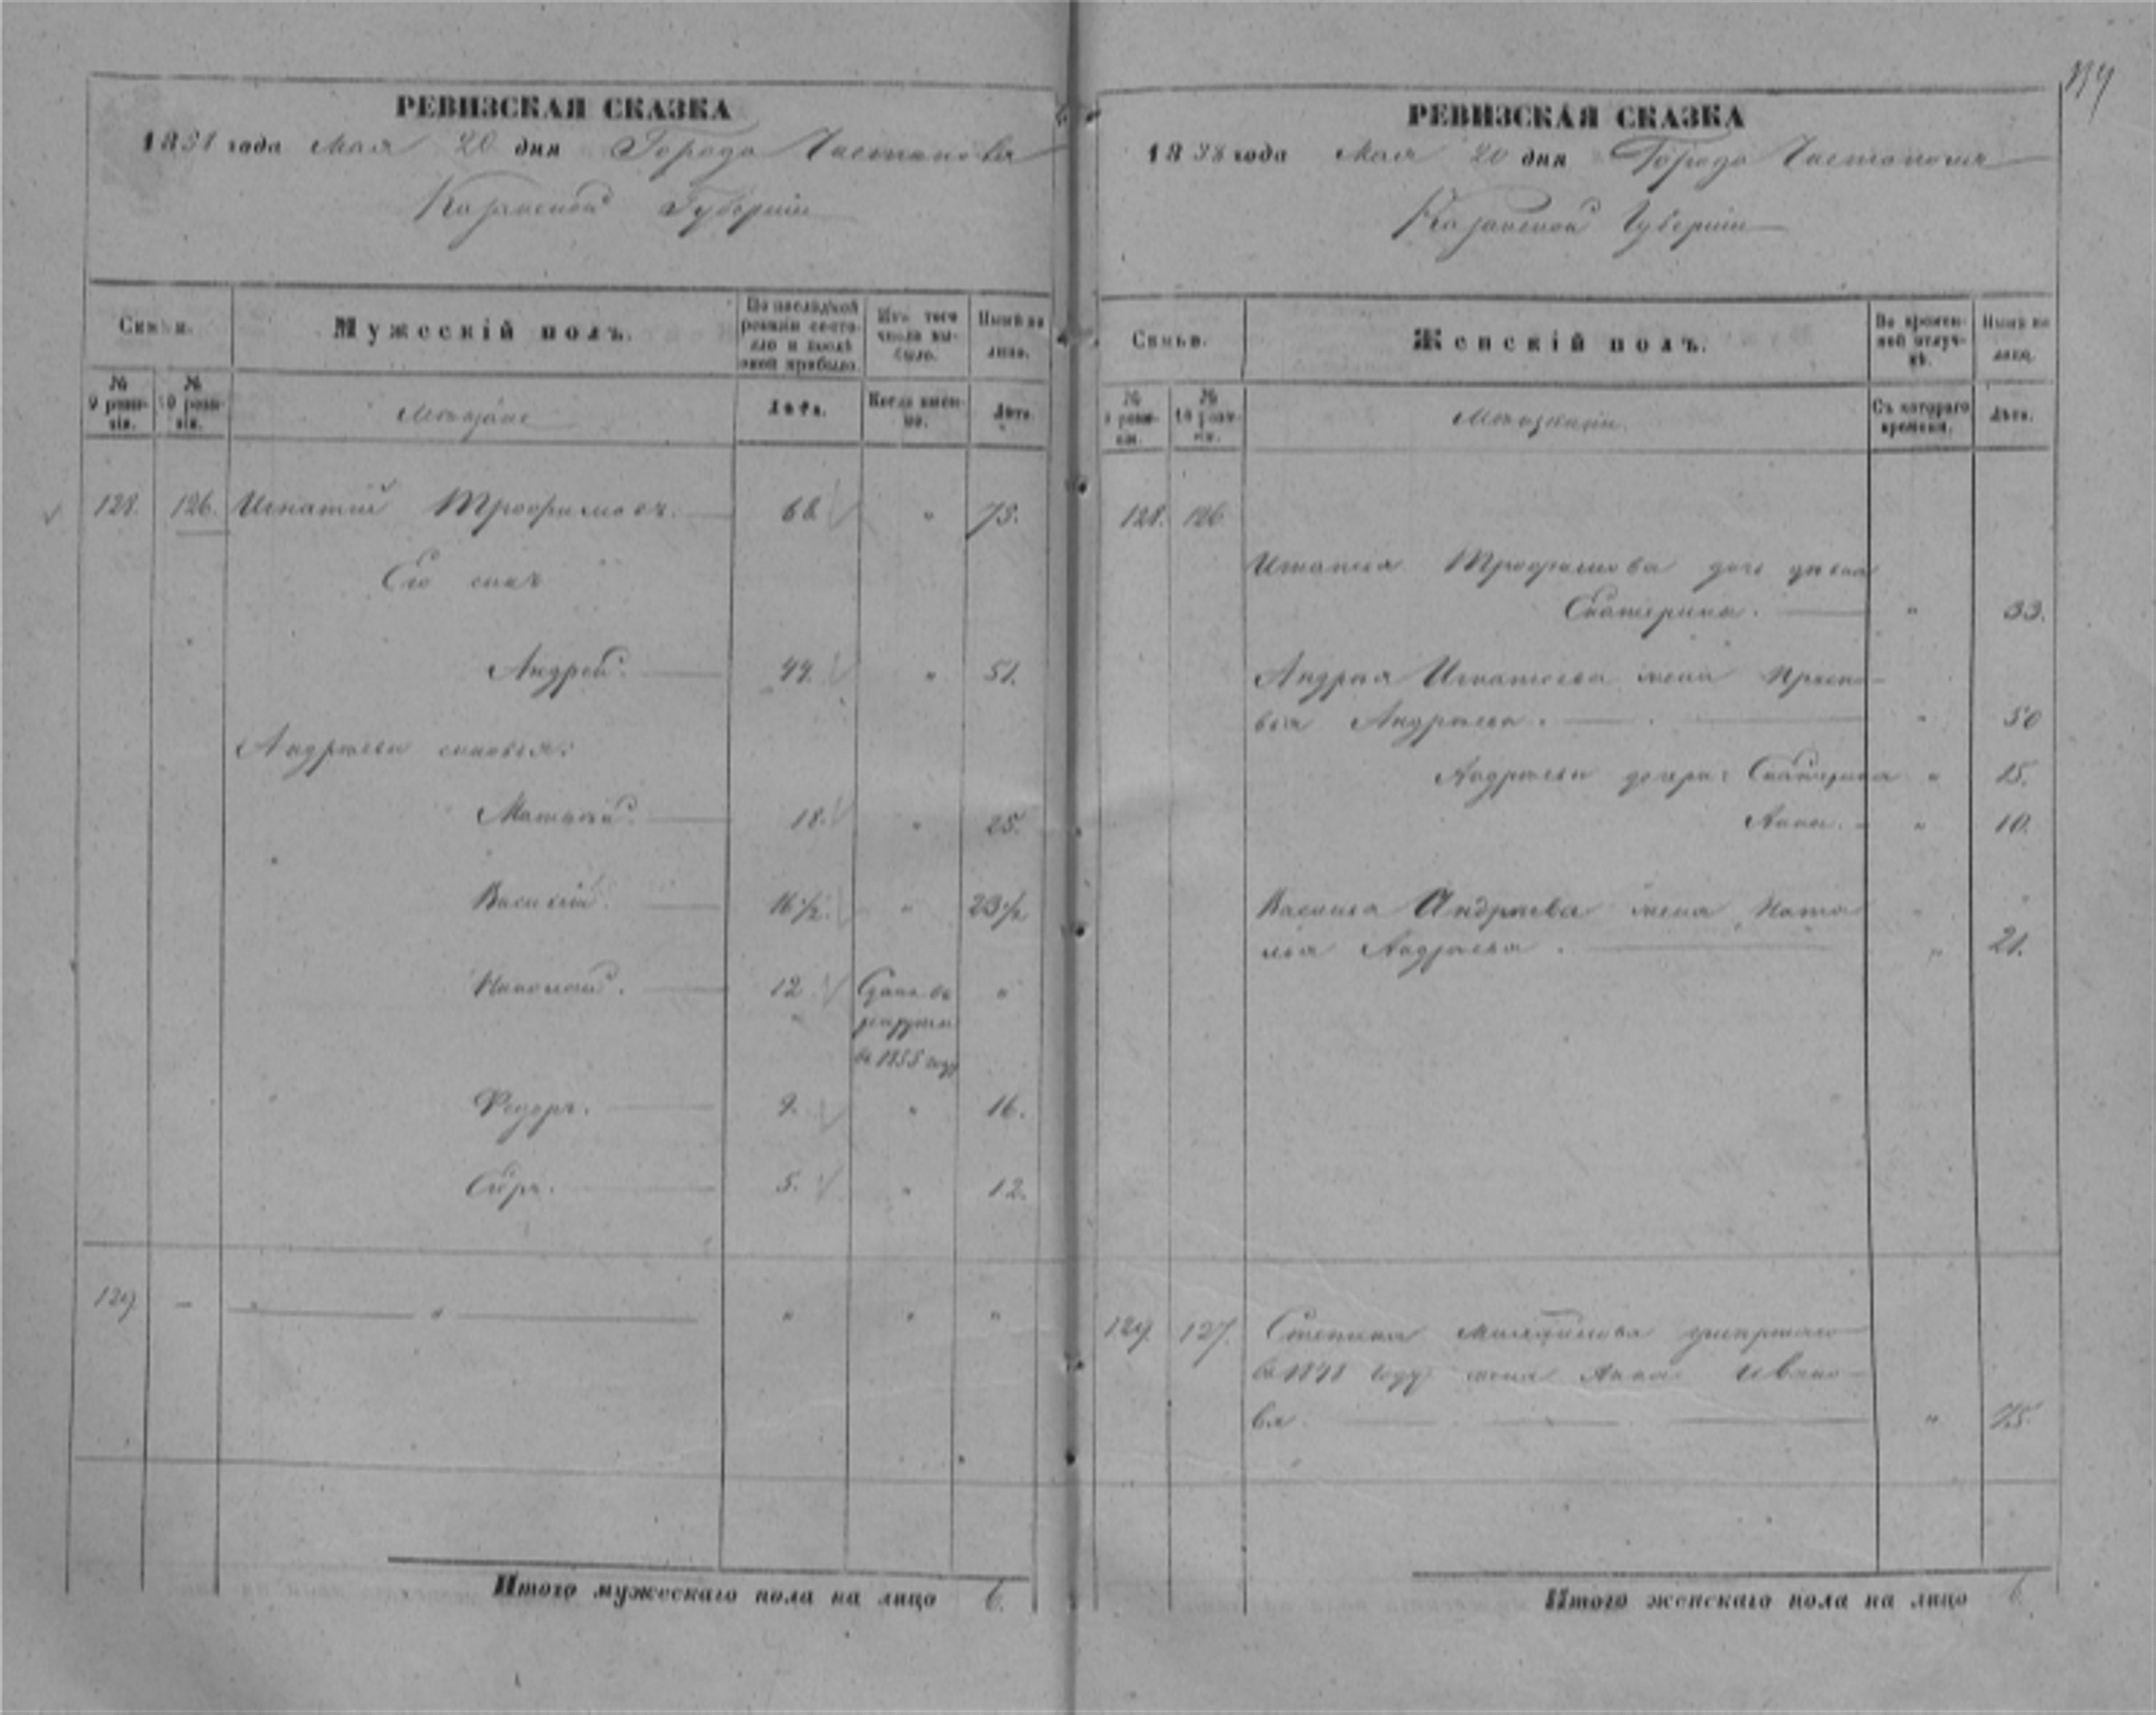 119
РЕВИЗСКАЯ СКАЗКА
1858 года Мая 20 дня Города Чистополя
Казанской Губерніи
Семьи.
Мужескій полъ.
По послѣдней ревизіи состояло и послѣ оной прибыло.
Изъ того числа выбыло.
Нынѣ на лицо.
№ 9 ревизіи.
№ 10 ревизіи.
Мѣщане
Лѣта.
Когда именно.
Лѣта.
128. 126. Игнатій Трофимовъ. 68 " 75.
Его сынъ
Андрей. 44. " 51.
Андреевы сыновья:
Матвей. 18. " 25.
Василій. 16 1/2. " 23 1/2
Николай. 12 Сданъ въ "
рекруты
въ 1855 году
Федоръ. 9. " 16.
Егоръ. 5. " 12.
129 — " " " " "
Итого мужескаго пола на лицо 6.
РЕВИЗСКАЯ СКАЗКА
1858 года Мая 20 дня Города Чистополя
Казанской Губерніи
Семьи.
Женскій полъ.
Во временной отлучкѣ.
Нынѣ на лицо.
№ 9 ревизіи.
№ 10 ревизіи.
Мѣщанки.
Съ котораго времени.
Лѣта.
128. 126
Игнатія Трофимова дочь дѣвка
Екатерина. " 33.
Андрея Игнатьева жена Праско-
вья Андреева. " 50
Андреевы дочери: Екатерина " 15.
Анна. " 10.
Василья Андреева жена Ната
лья Андреева. " 21.
129. 127. Степана Михайлова умершаго
въ 1848 году жена Анна Ивано-
ва. " 75.
Итого женскаго пола на лицо 6